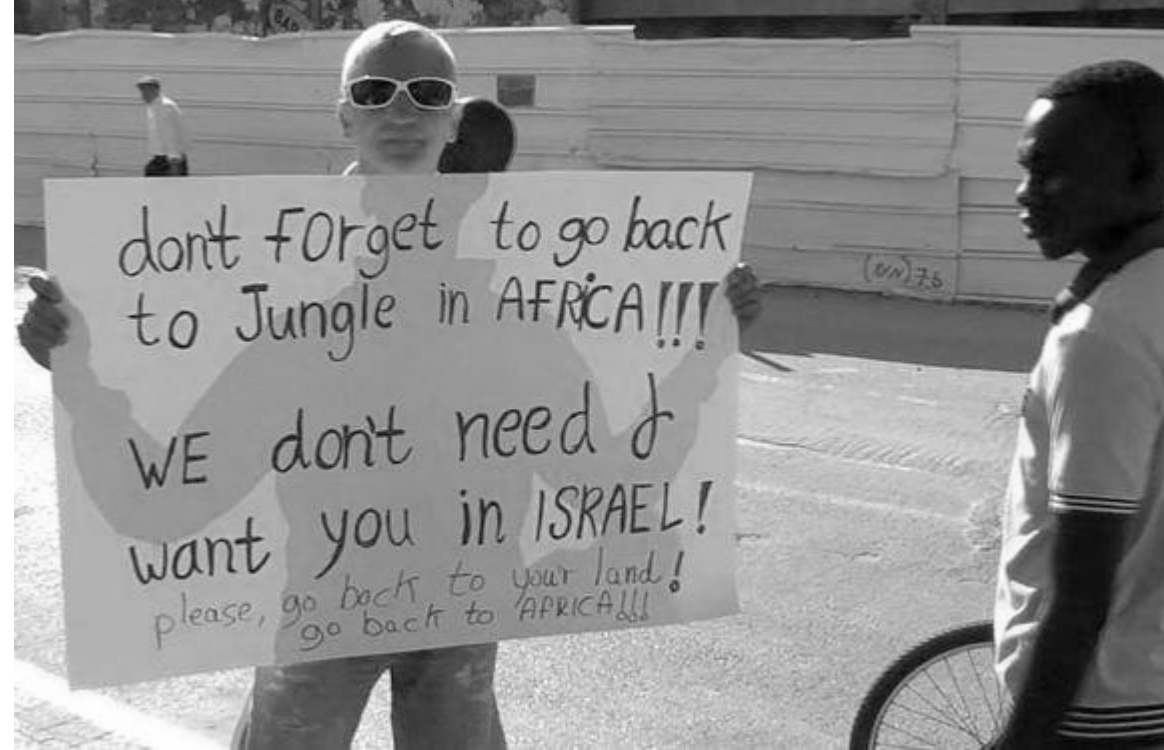 don't FOrget to go back
to Jungle in AFRiCA!!!
WE don't need &
want you in ISRAEL!
please, go back to your land!
go back to AFRICA!!!
(NN)76